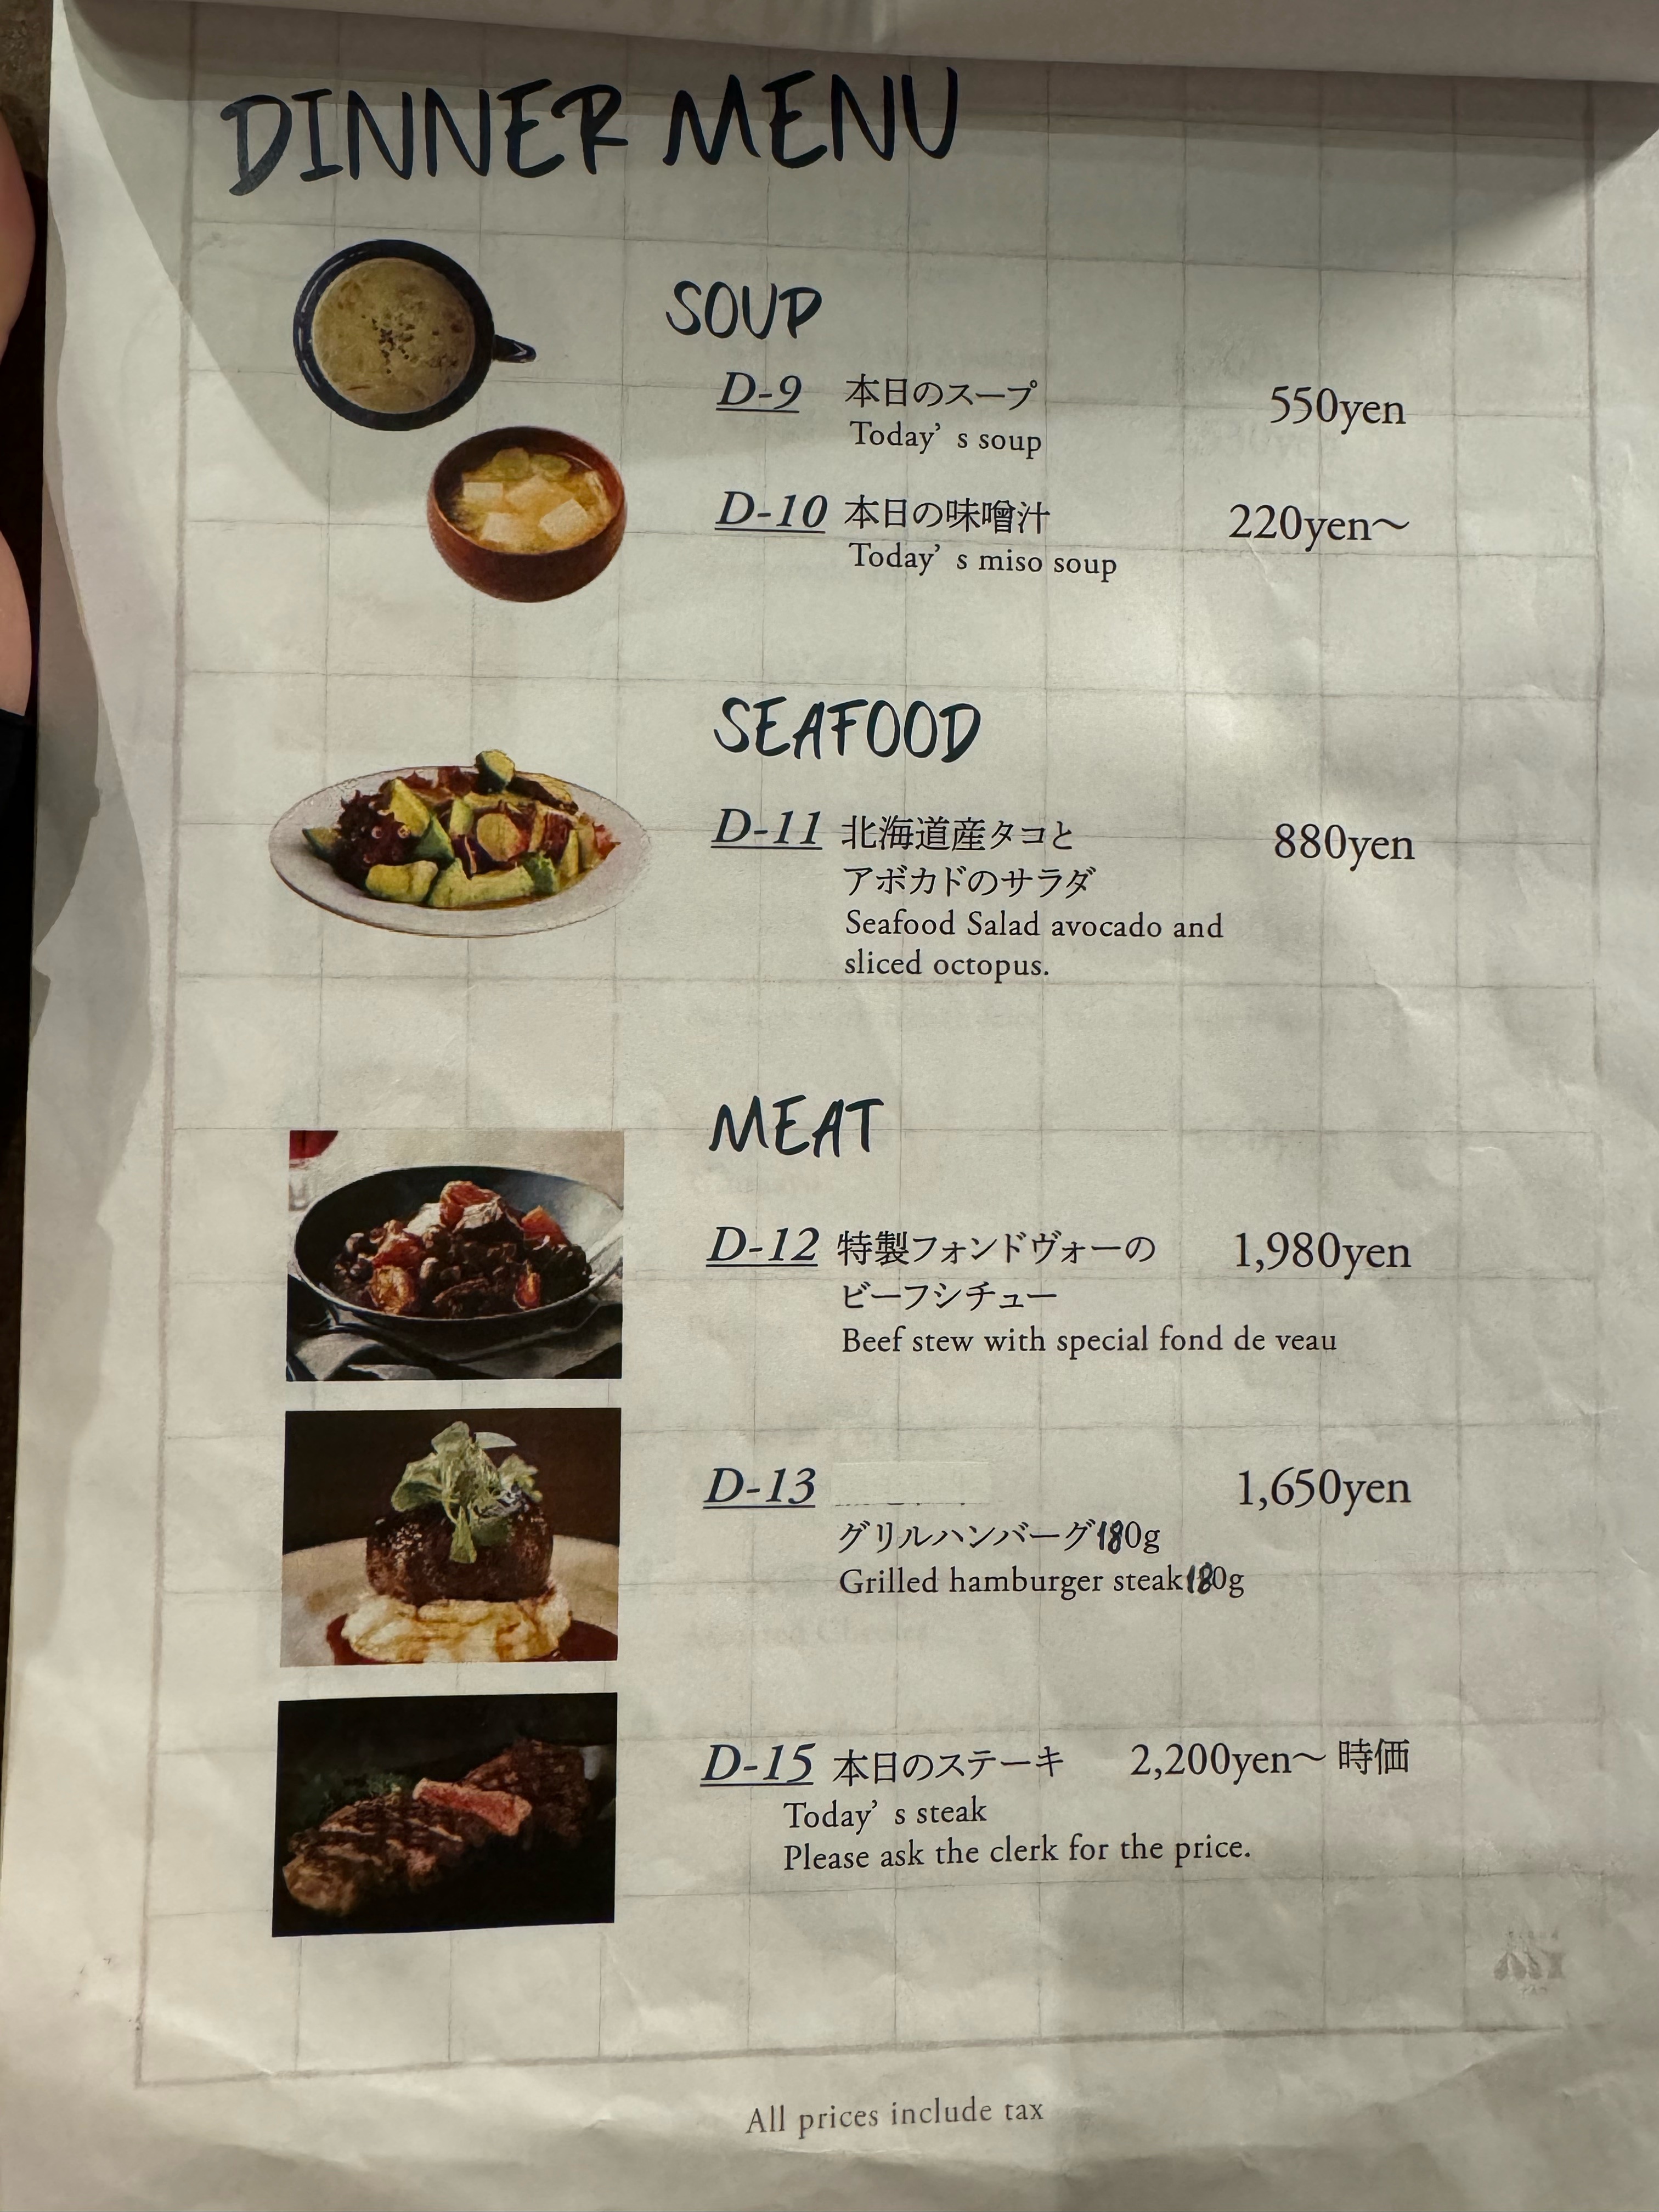 DINNER MENU
SOUP
D-9 本日のスープ 550yen
Today’s soup
D-10 本日の味噌汁 220yen～
Today’s miso soup
SEAFOOD
D-11 北海道産タコと 880yen
アボカドのサラダ
Seafood Salad avocado and
sliced octopus.
MEAT
D-12 特製フォンドヴォーの 1,980yen
ビーフシチュー
Beef stew with special fond de veau
D-13 1,650yen
グリルハンバーグ180g
Grilled hamburger steak180g
D-15 本日のステーキ 2,200yen～ 時価
Today’s steak
Please ask the clerk for the price.
All prices include tax